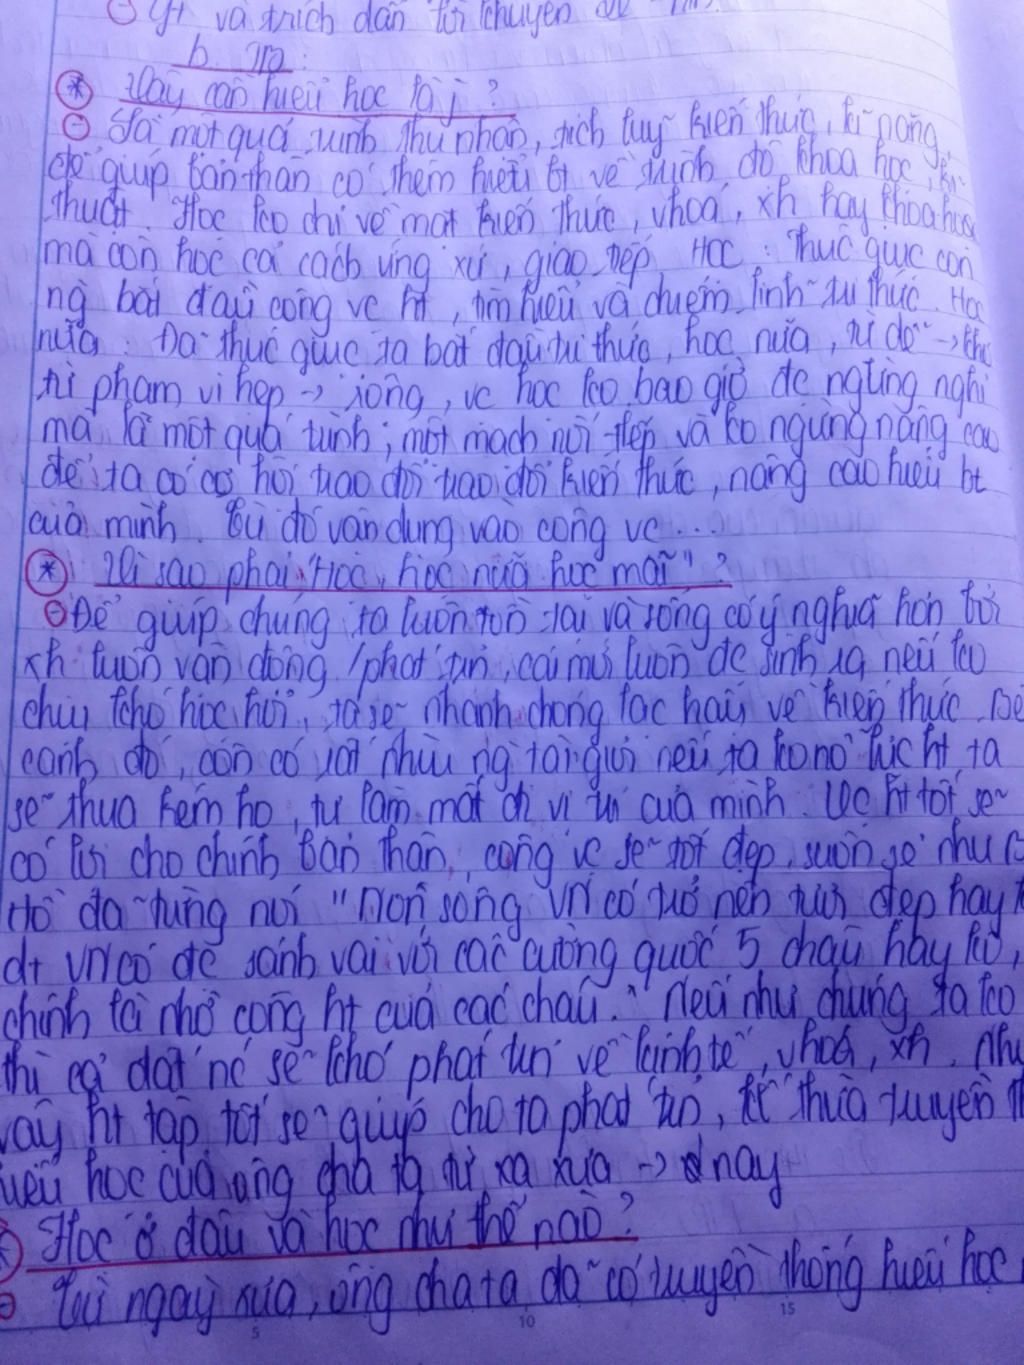 ⊖ Gt và trích dẫn lời khuyên
b. TB:
* Vậy cần hiểu học là j?
⊖ Là một quá trình thu nhận, tích luỹ kiến thức, kĩ năng,
để giúp bản thân có thêm hiểu bt về trình độ khoa học, kĩ
thuật. Học ko chỉ về mặt kiến thức, vhoá, xh hay khoa học
mà còn học cả cách ứng xử, giao tiếp. Học: Thúc giục con
ng bắt đầu công vc ht, tìm hiểu và chiếm lĩnh tri thức. Học
nữa: Đã thúc giục ta bắt đầu tri thức, học nữa, từ đó →
từ phạm vi hẹp → rộng, vc học ko bao giờ đc ngừng nghỉ
mà là một quá trình, một mạch nối tiếp và ko ngừng nâng cao
để ta có cơ hội trao đổi trao đổi kiến thức, nâng cao hiểu bt
của mình. Từ đó vận dụng vào công vc...
* Vì sao phải "Học, học nữa học mãi"?
⊖ Để giúp chúng ta luôn tồn tại và sống có ý nghĩa hơn bởi
xh luôn vận động / phát triển, cái mới luôn đc sinh ra nếu ko
chịu khó học hỏi, ta sẽ nhanh chóng lạc hậu về kiến thức. Bê
cạnh đó, còn có rất nhìu ng tài giỏi nếu ta ko nỗ lực ht ta
sẽ thua kém họ, tự làm mất đi vị trí của mình. Vc ht tốt sẽ
có lợi cho chính bản thân, công vc sẽ tốt đẹp, suôn sẻ như
Hồ đã từng nói "Non sông VN có trở nên tươi đẹp hay
dt VN có đc sánh vai với các cường quốc 5 châu hay ko,
chính là nhờ công ht của các cháu." Nếu như chúng ta ko
thì cả đất nc sẽ khó phát triển về kinh tế, vhoá, xh. Như
vậy ht tập tốt sẽ giúp cho ta phát triển, kế thừa truyền
hiếu học của ông cha ta từ xa xưa → nay
* Học ở đâu và học như thế nào?
⊖ Từ ngày xưa, ông cha ta đã có truyền thống hiếu học
5 10 15